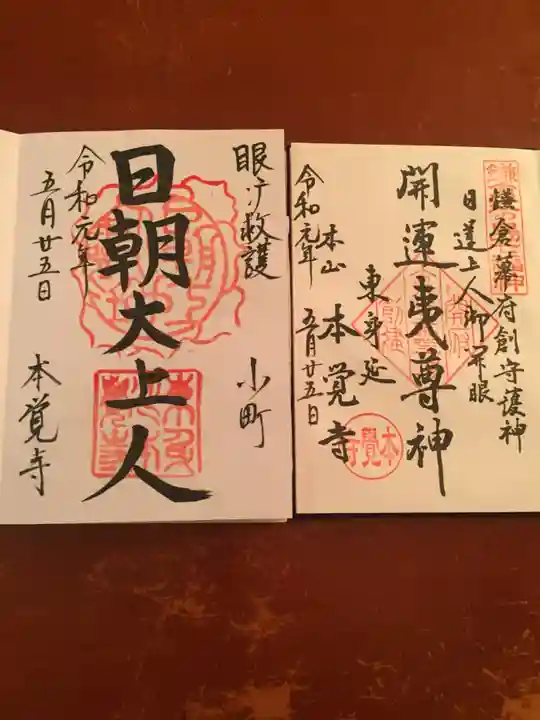 眼病救護
小町
日朝大上人
令和元年
五月廿五日
本覚寺
鎌倉幕府創守護神
日蓮上人御開眼
開運夷尊神
東身延
本山 本覚寺
令和元年 五月廿五日
本覺寺